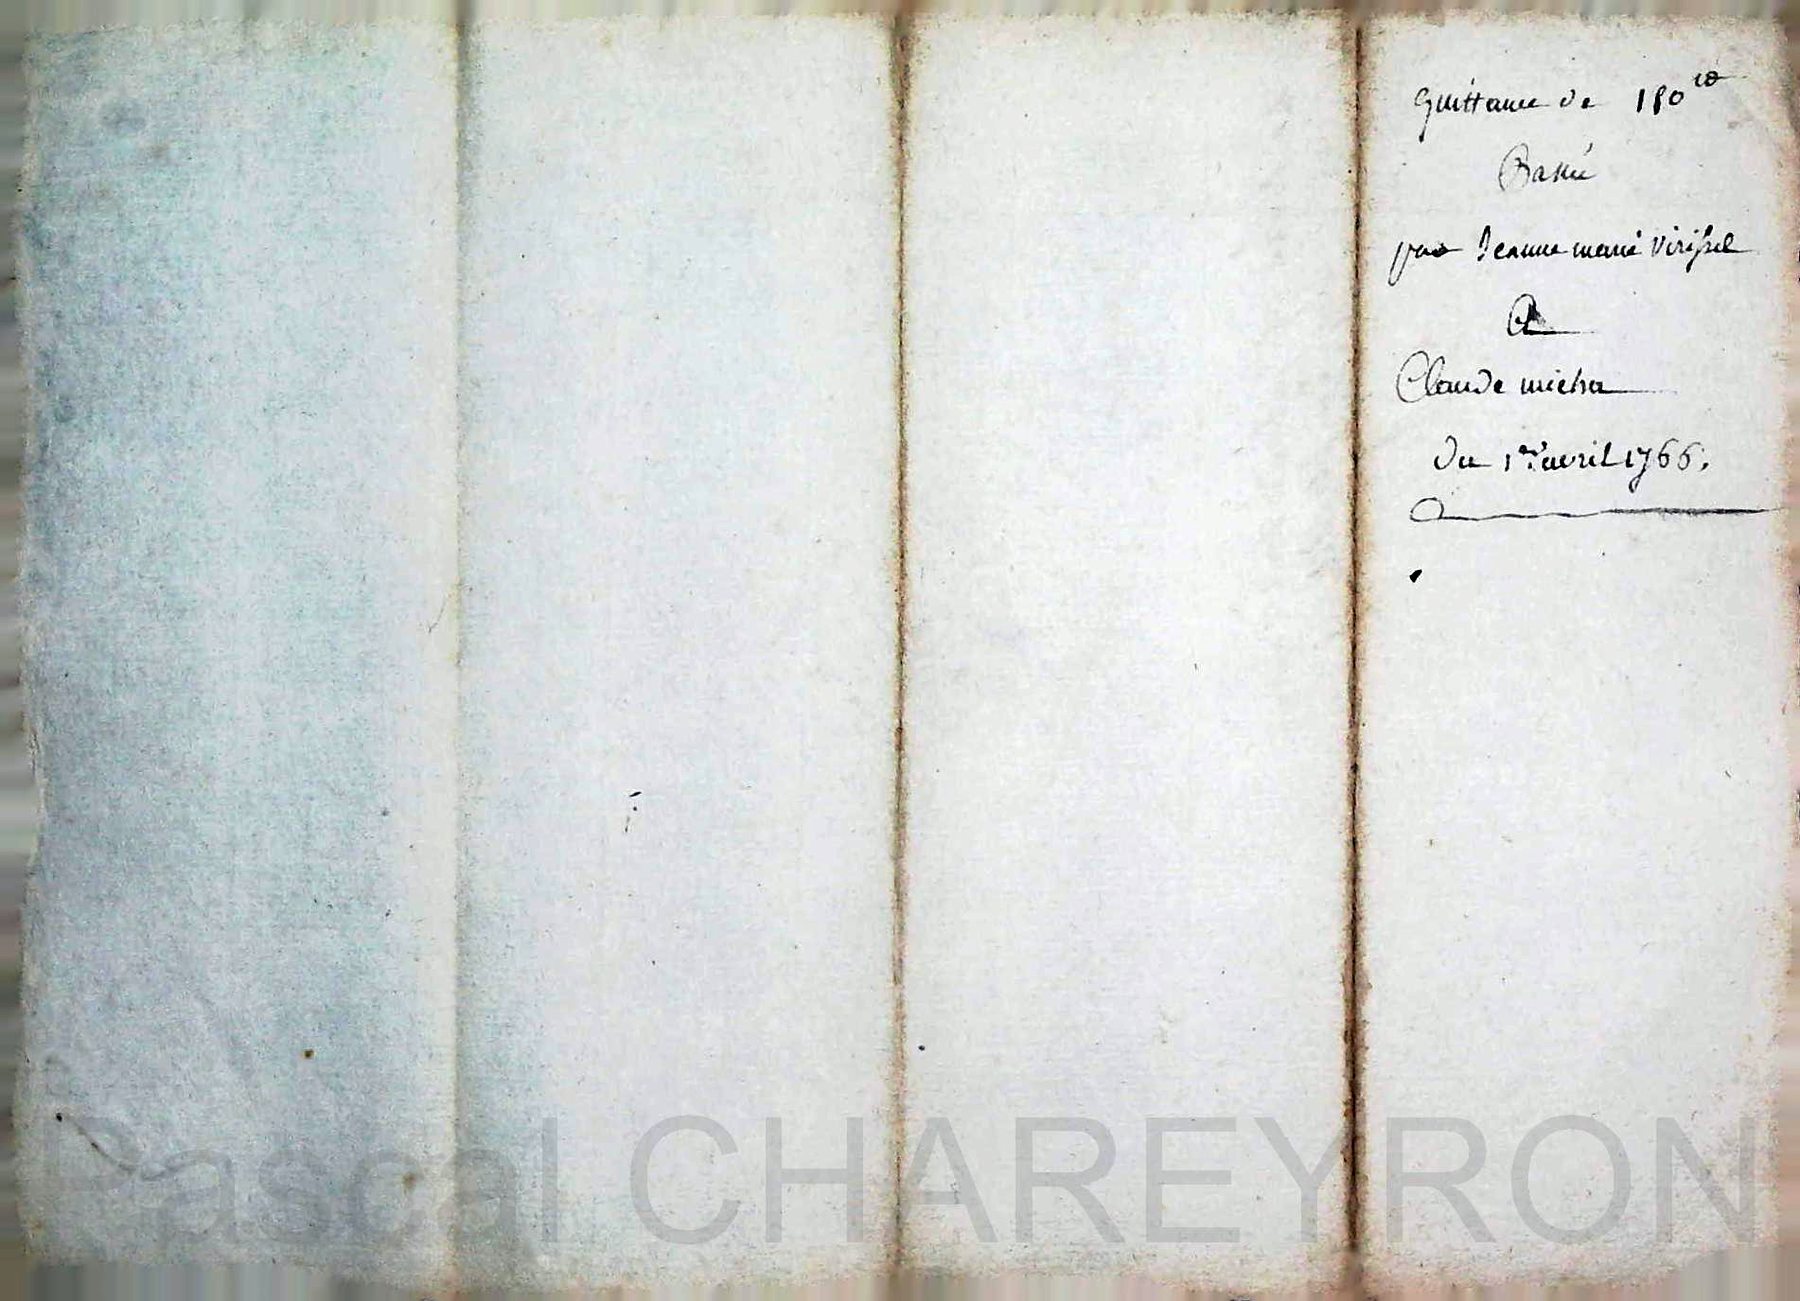 Quittance de 150ₗₜ
Passé
par Jeanne marie Virissel
A
Claude micha
Du 1er avril 1766.
Pascal CHAREYRON